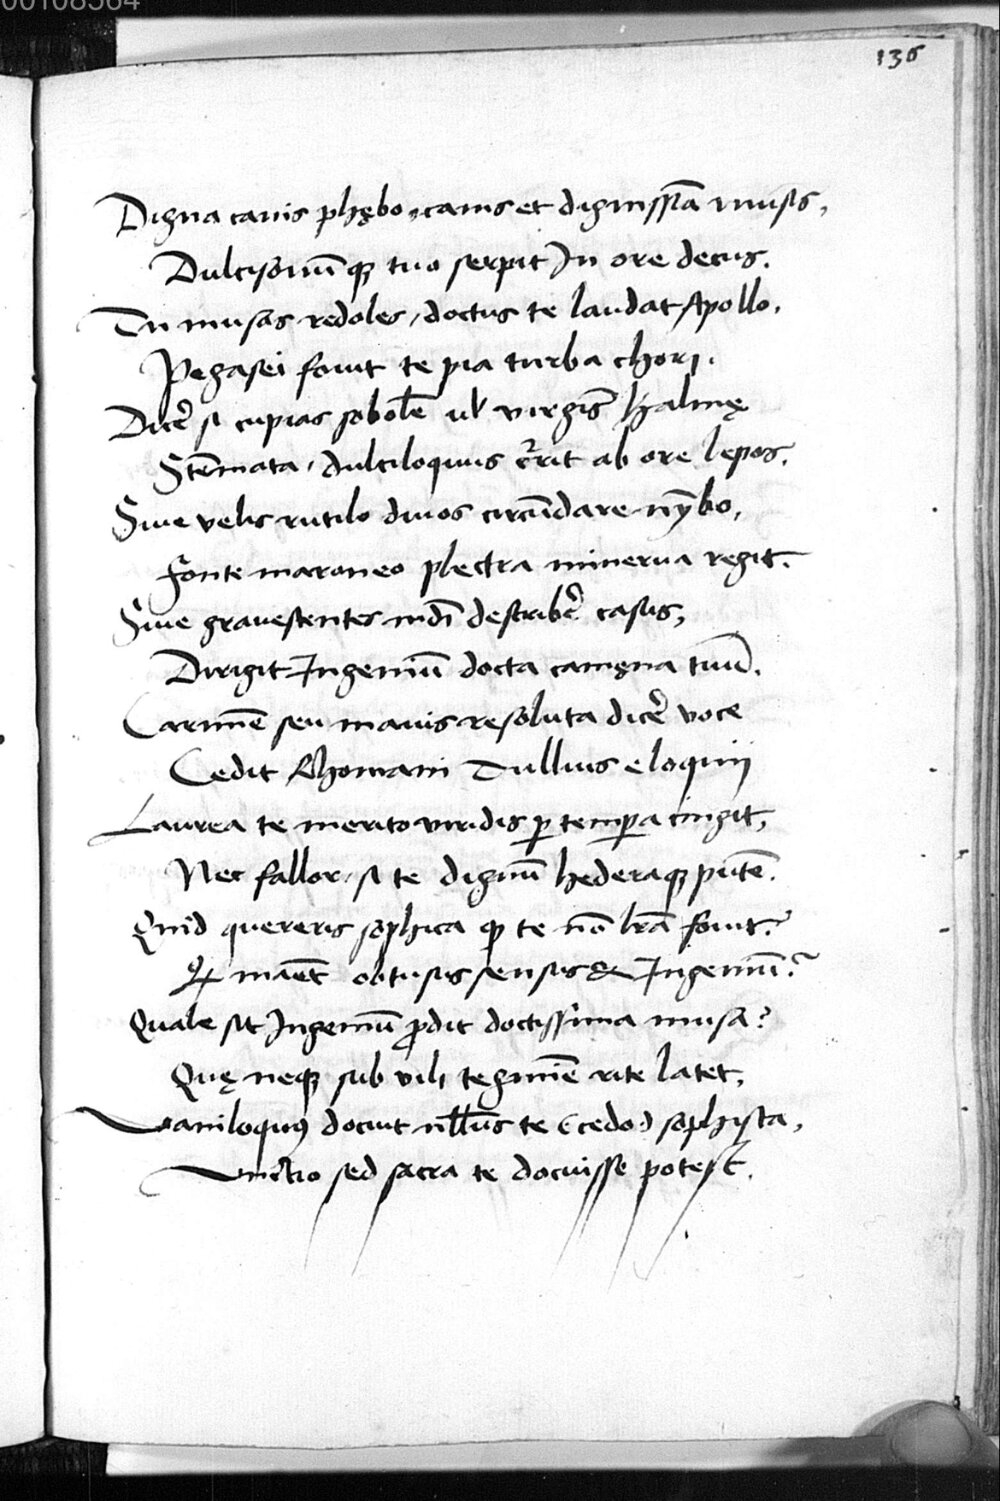 00108564
136
Digna canis phębo, canis et dignissīa musis,
Dulcisonūqꝫ tuo serpit In ore decus.
Tu musas redoles, doctus te laudat Apollo.
Pegasei fouit te pia turba chorj.
Dicẽ si cupias sobolē ul virgīs halmę
Stēmata, dulciloquus cˀrit ab ore lepos.
Siue velis rutilo diuos circūdare nỹbo,
Fonte maroneo plectra minerua regit.
Siue grauescentes mdī describẽ casus,
Dirigit Ingeniū docta camęna tuū.
Carmē seu mauis resoluta dicẽ voce
Cedit Rhomani Tullius eloquij
Laurea te merito viridis ꝑ tempora cingit,
Nec fallor, si te dignū hederaqꝫ putē.
Quid quereris sophica ꝙ te nō lrā fouit?
maēt obtusus sensus & Ingeniū?
Quale sit Ingeniū ꝓdit doctissima musa?
Quę neqꝫ sub vili tegmīe rite latet,
Vaniloquꝰ docuit nllūs te (cedo) sophista,
Vnctio sed sacra te docuisse potest.